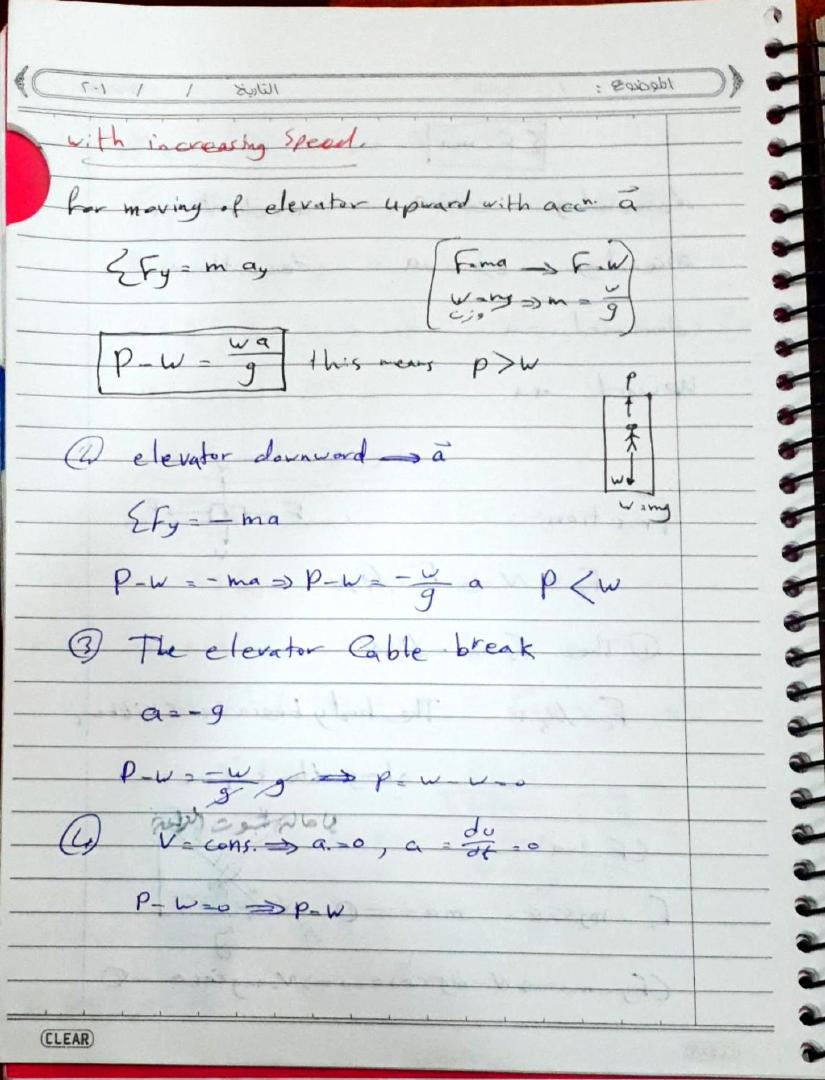 الموضوع :
التاريخ / / ٢٠١
with increasing Speed.
for moving of elevator upward with accn. a⃗
ΣFy = m ay
F=ma → F=W
W=mg ⇒ m = w/g
وزن
P-W = wa/g this means p>w
P
W
W=mg
② elevator downward → a⃗
ΣFy = - ma
P-W = - ma ⇒ P-W = - w/g a P < W
③ The elevator Cable break
a = - g
P-W = -w/g g ⇒ P = W-W=0
في حالة ثبوت السرعة
④ V = cons. ⇒ a=0 , a = dv/dt = 0
P- W=0 ⇒ P=W
CLEAR